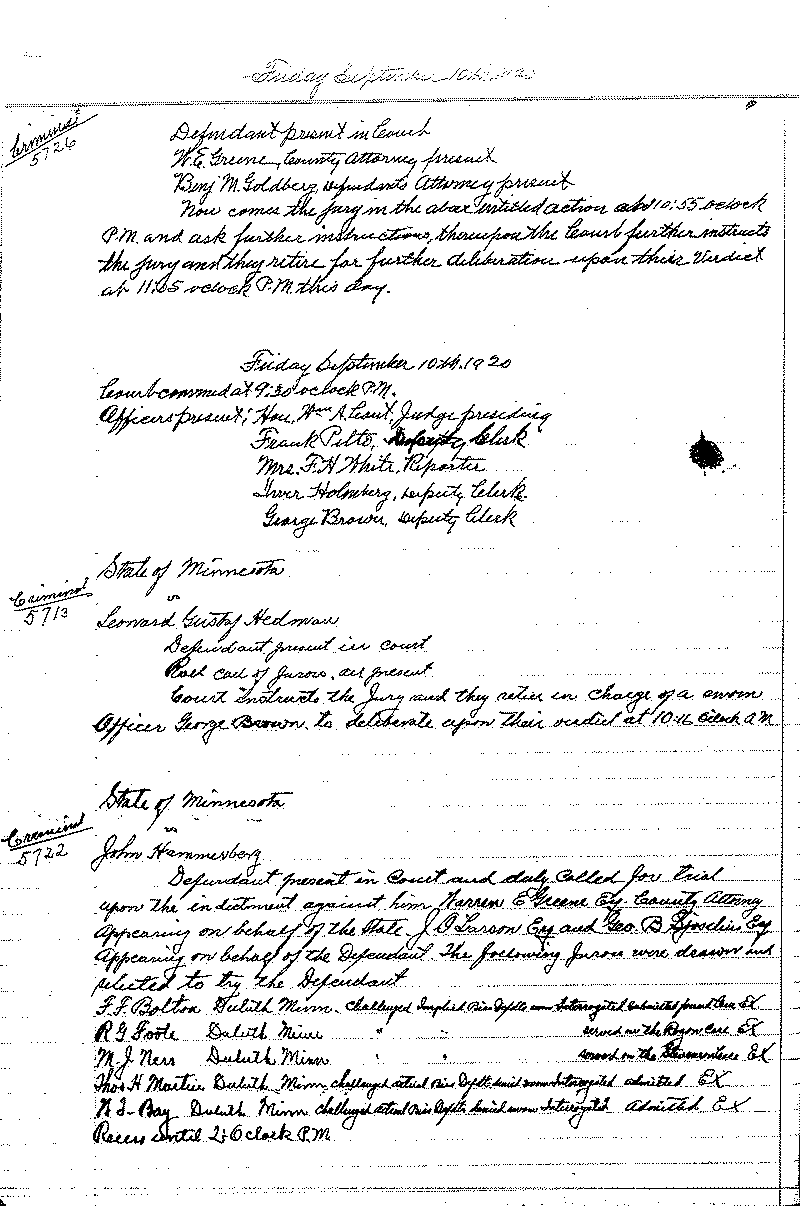 Friday September 10th 1920
Criminal
5726
Defendant present in Court
W.E. Greene, County Attorney present
Benj M. Goldberg, Defendants Attorney present
Now comes the jury in the above entitled action at 10:55 oclock
P.M. and ask further instructions, thereupon the Court further instructs
the jury and they retire for further deliberation upon their Verdict
at 11:05 oclock P.M. this day.
Friday September 10th. 1920
Court convened at 9:30 oclock P.M.
Officers present; Hon. Wm A. Cant, Judge presiding
Frank Pelto, Deputy Clerk
Mrs. F.H. White, Reporter
Iver Holmberg, Deputy Clerk.
George Brown, Deputy Clerk
Criminal
5713
State of Minnesota
vs
Leonard Gustaf Hedman
Defendant present in court
Roll call of Jurors, all present
Court instructs the Jury and they retire in charge of a sworn
Officer George Brown, to deliberate upon their verdict at 10:16 Oclock A.M
Criminal
5722
State of Minnesota
vs
John Hammerberg
Defendant present in Court and duly called for trial
upon the indictment against him Warren E Greene Esq County Attorney
Appearing on behalf of the State. J. O Larson Esq and Geo. B Sjoselius Esq
Appearing on behalf of the Defendant. The following Jurors were drawn and
selected to try the Defendant
F.F. Bolton Duluth Minn. challenged Implied Bias Interrogated Case EX
R G Foote Duluth Minn " " served on the Case EX
M. J. Ness Duluth Minn " " served on the Case EX
Thos H Martin Duluth Minn challenged actual Bias denied sworn Interrogated admitted EX
Bay Duluth Minn challenged actual Bias denied sworn Interrogated admitted EX
Recess until 2: Oclock P.M.